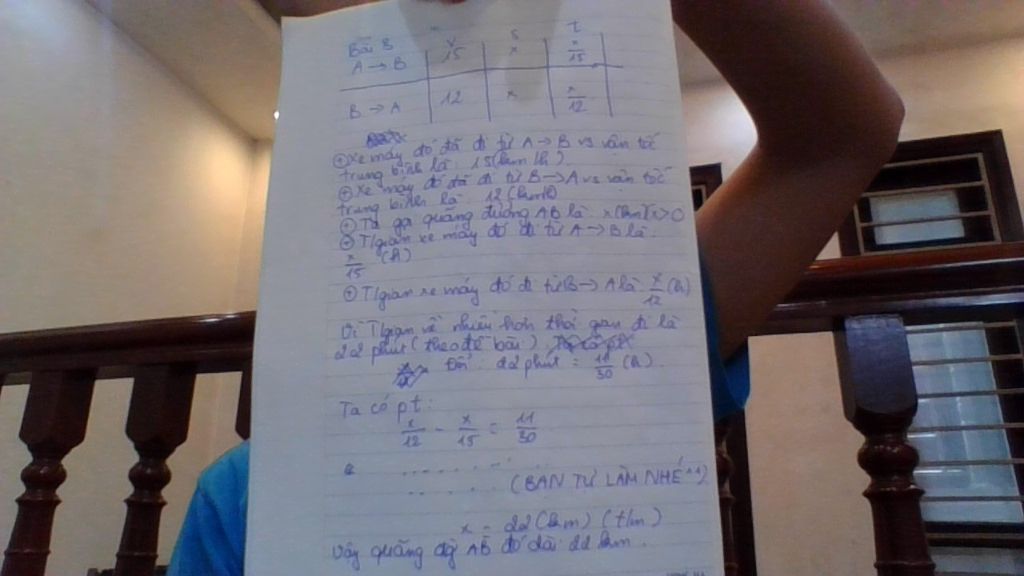 Bài 8 V S t
A → B 15 x x/15
B → A 12 x x/12
⊕ Xe máy đó đã đi từ A → B vs vận tốc
trung bình là: 15 (km/h)
⊕ Xe máy đó đã đi từ B → A vs vận tốc
trung bình là: 12 (km/h)
⊕ Ta gọi quãng đường AB là x (km) (x > 0
⊕ T/gian xe máy đó đi từ A → B là:
x/15 (h)
⊕ T/gian xe máy đó đi từ B → A là x/12 (h)
Vì T/gian về nhiều hơn thời gian đi là
22 phút (theo đề bài)
đổi: 22 phút = 11/30 (h).
Ta có pt:
x/12 - x/15 = 11/30
(BẠN TỰ LÀM NHÉ ^^)
x = 22 (km) (t/m)
Vậy quãng đg AB đó dài 22 km.